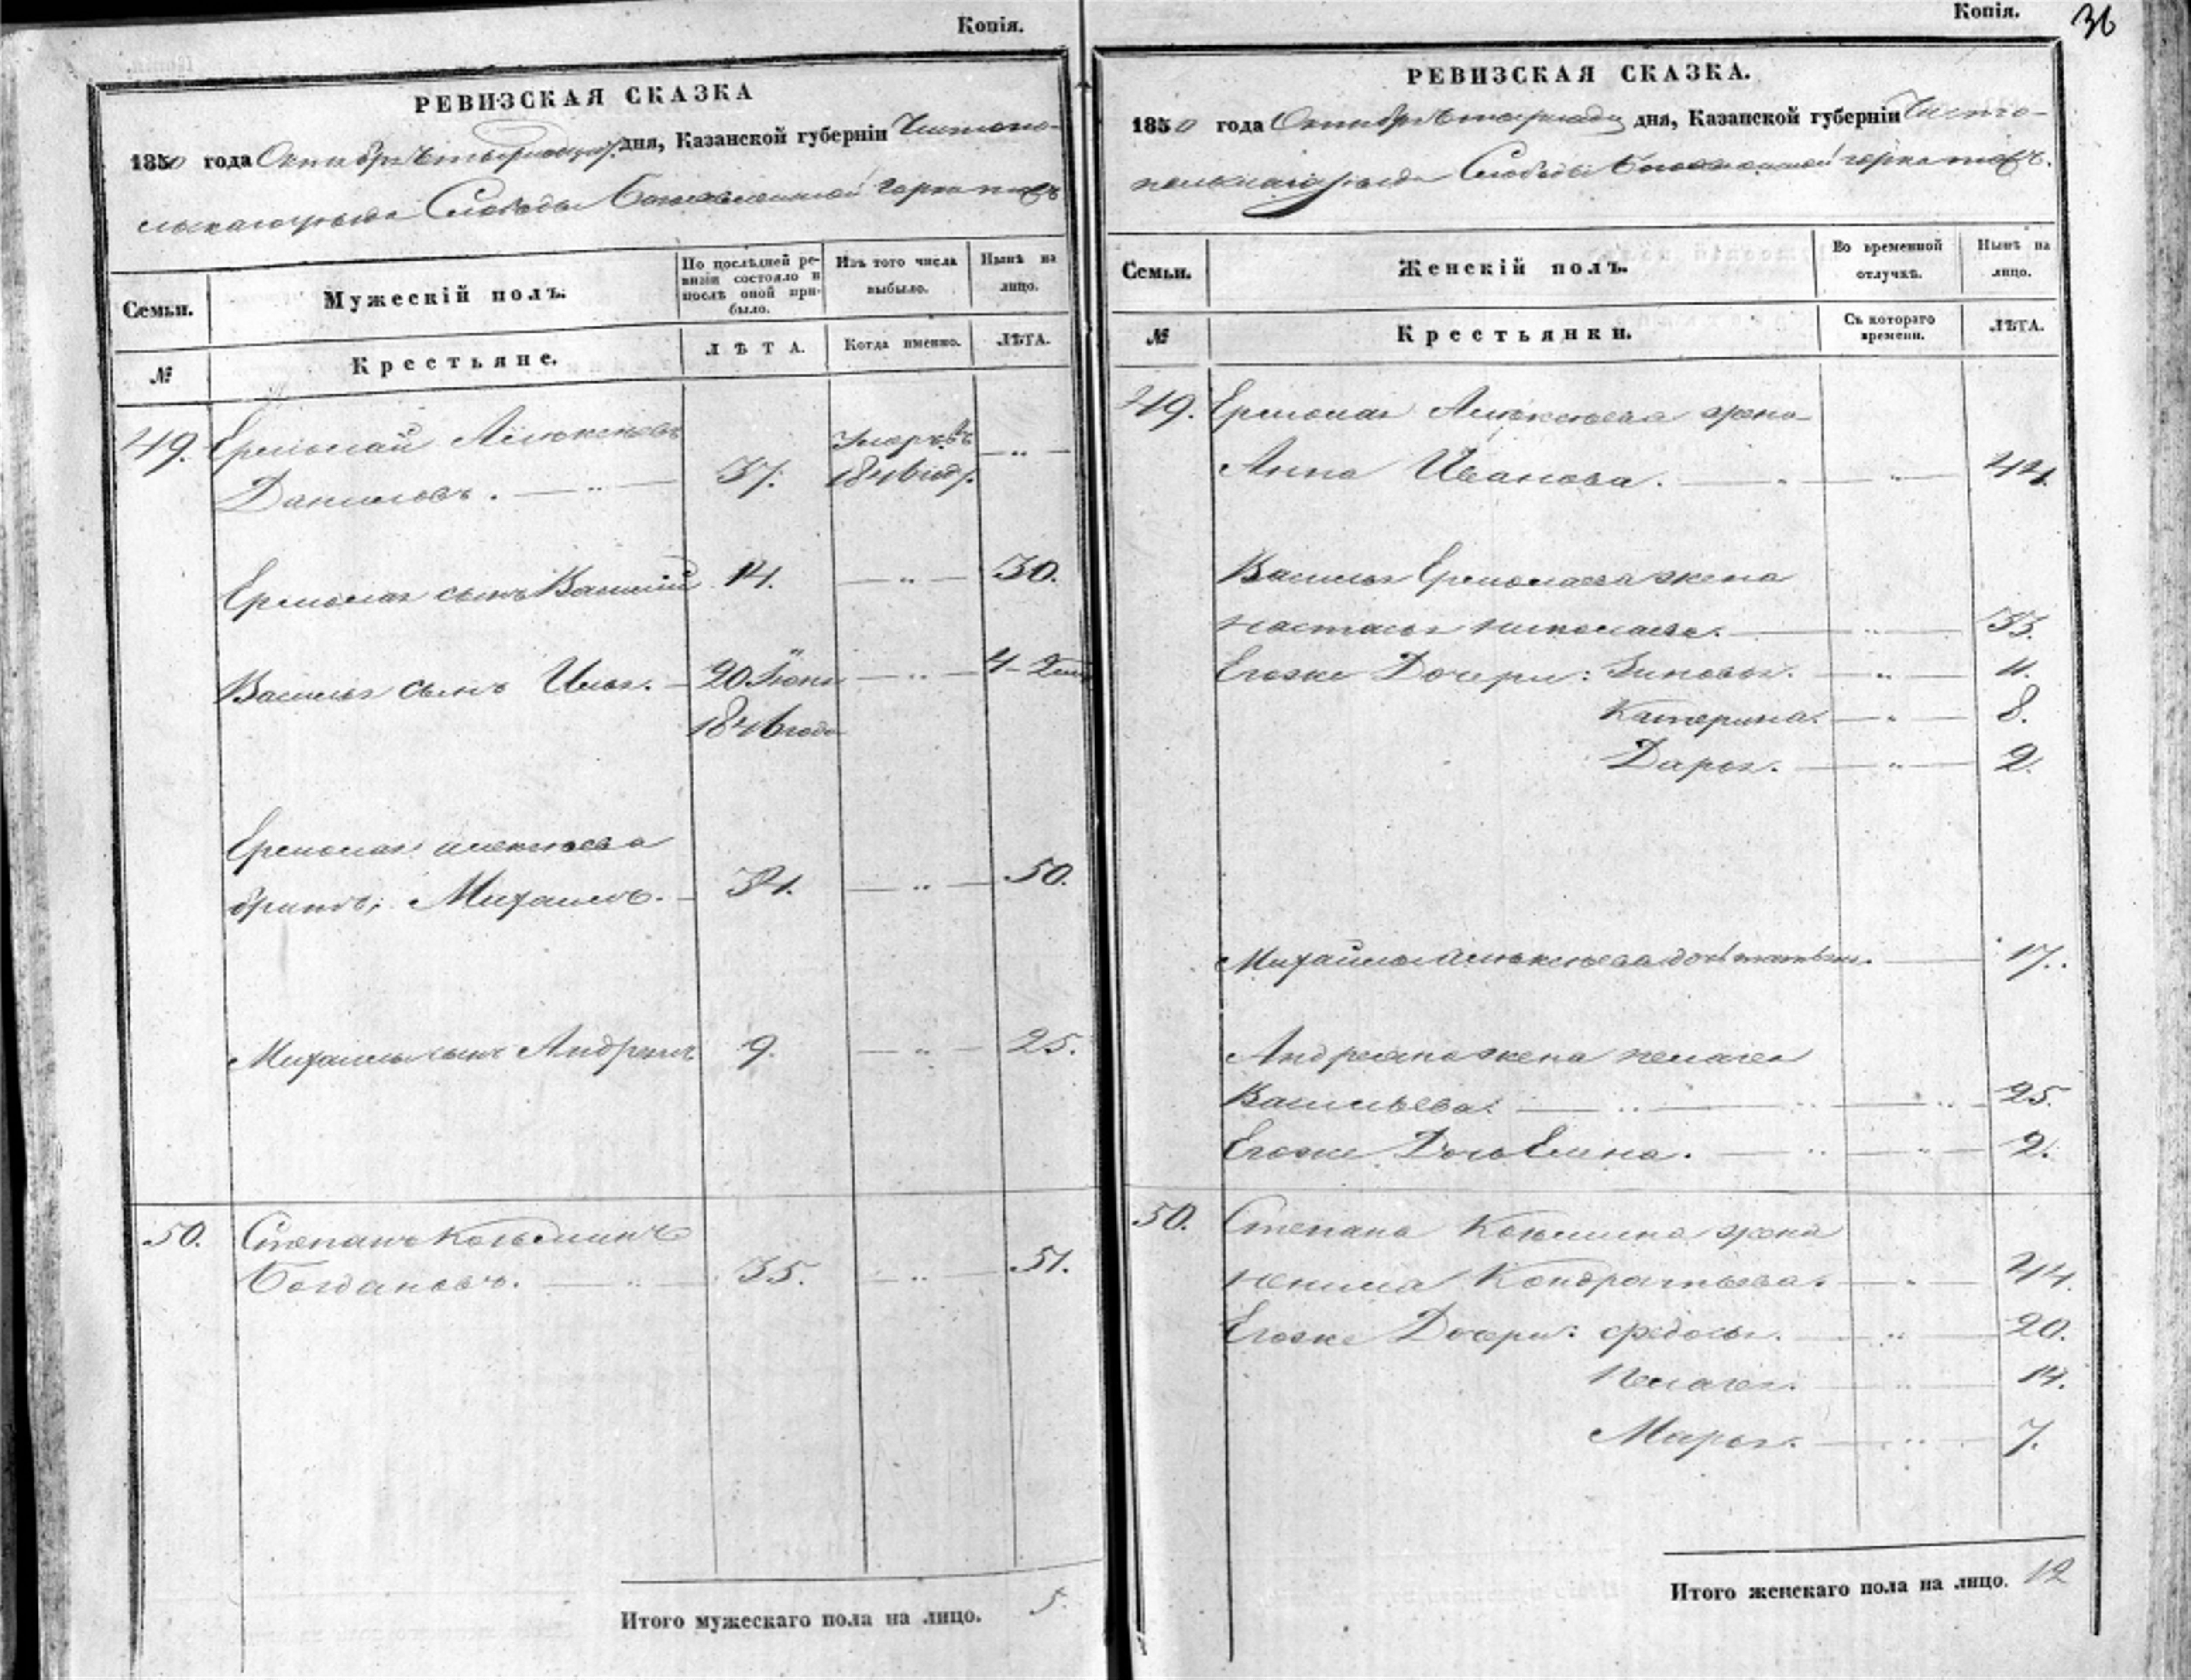 Копія.
РЕВИЗСКАЯ СКАЗКА
1850 года Октября дня, Казанской губерніи Чистопо-
льскаго уѣзда Слободы Богоявленской горка тожъ
Семьи. Мужескій полъ. По послѣдней ре-визіи состояло и послѣ оной при-было. Изъ того числа выбыло. Нынѣ на лицо.
№ Крестьяне. ЛѢТА. Когда именно. ЛѢТА.
49. Ермолай Алексѣевъ Умеръ въ
Даниловъ. — " — 37. 1846 году — " —
Ермолая сынъ Василій 14. — " — 30.
Василья сынъ Илья. — 20 Іюня — " — 4
1846 года
Ермолая Алексѣева
братъ, Михаилъ. — 34. — " — 50.
Михайлы сынъ Андреянъ 9. — " — 25.
50. Степанъ Козьминъ
Богдановъ. — " — 35. — " — 51.
Итого мужескаго пола на лицо. 5.
Копія. 36
РЕВИЗСКАЯ СКАЗКА.
1850 года Октября дня, Казанской губерніи Чисто-
польскаго уѣзда Слободы Богоявленской горка тожъ.
Семьи. Женскій полъ. Во временной отлучкѣ. Нынѣ на лицо.
№ Крестьянки. Съ котораго времени. ЛѢТА.
49. Ермолая Алексѣева жена
Анна Иванова. — " — 44.
Василья Ермолаева жена
Настасья Николаева. — " — 33.
Егоже Дочери: Зиновья. — " — 11.
Катерина. — " — 8.
Дарья. — " — 2.
Михайлы Алексѣева дочь Татьяна. — 17.
Андреяна жена Пелагея
Васильева. — " — 25.
Егоже Дочь Елена. — " — 2.
50. Степана Козьмина жена
Кондратьева. — " — 44.
Егоже Дочери: Федосья. — " — 20.
Пелагея. — " — 14.
Марья. — " — 7.
Итого женскаго пола на лицо. 12